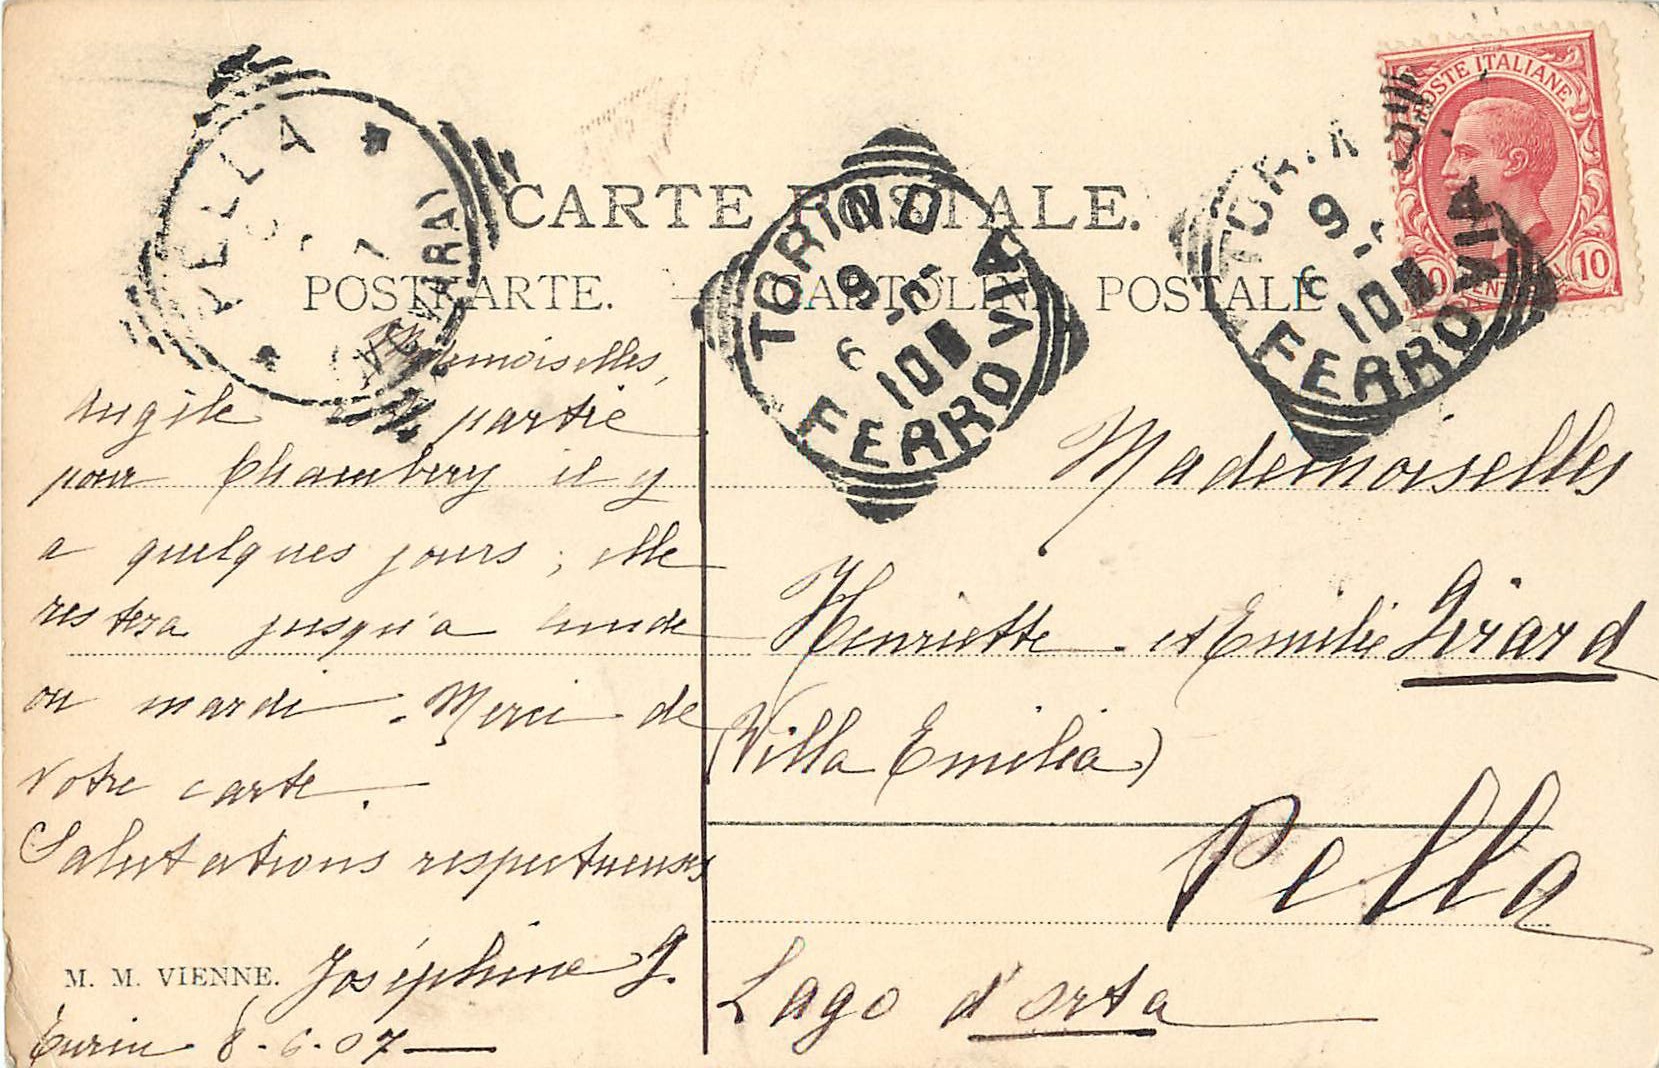 CARTE POSTALE.
POSTKARTE. — CARTOLINA POSTALE
PELLA
TORINO
9
6
10
FERROVIA
TORIN
9
6
10
FERROVIA
POSTE ITALIANE
10
Mademoiselles,
est partie
pour Chambéry il y
a quelques jours; elle
restera jusqu'a
ou mardi. Merci de
votre carte.
Salutations respectueuses
Joséphine J.
Turin 8-6-07
M. M. VIENNE.
Mademoiselles
Henriette et Emilie Girard
(Villa Emilia)
Pella
Lago d'Orta